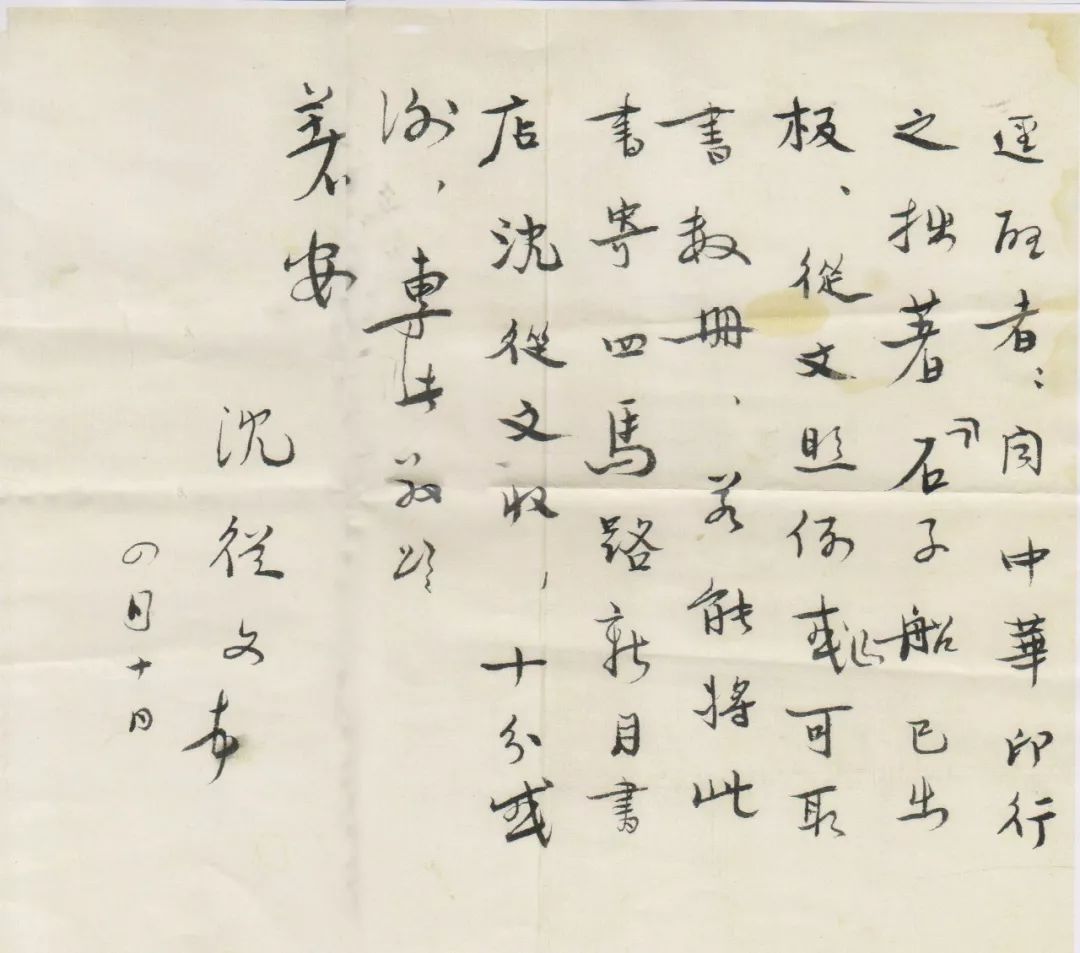 逕啓者：中華印行
之拙著『石子船』已出
板、從文照例或可取
書數冊，若能將此
書寄四馬路新月書
店沈從文收，十分感
謝，專此敬頌
著安
沈從文
四月十日